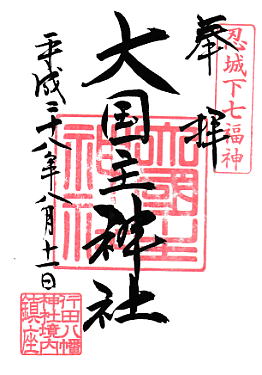 忍城下七福神
奉拝
大国主神社
大國主
神社
平成二十八年八月十一日
行田八幡
神社境内
鎮座